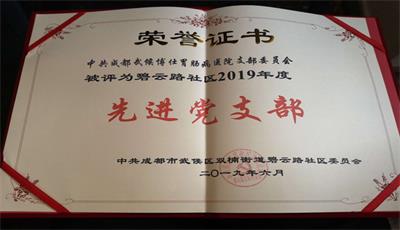 荣誉证书
中共成都武候博仕胃肠病医院支部委员会
被评为碧云路社区2019年度
先进党支部
中共成都市武侯区双楠街道碧云路社区委员会
二〇一九年六月